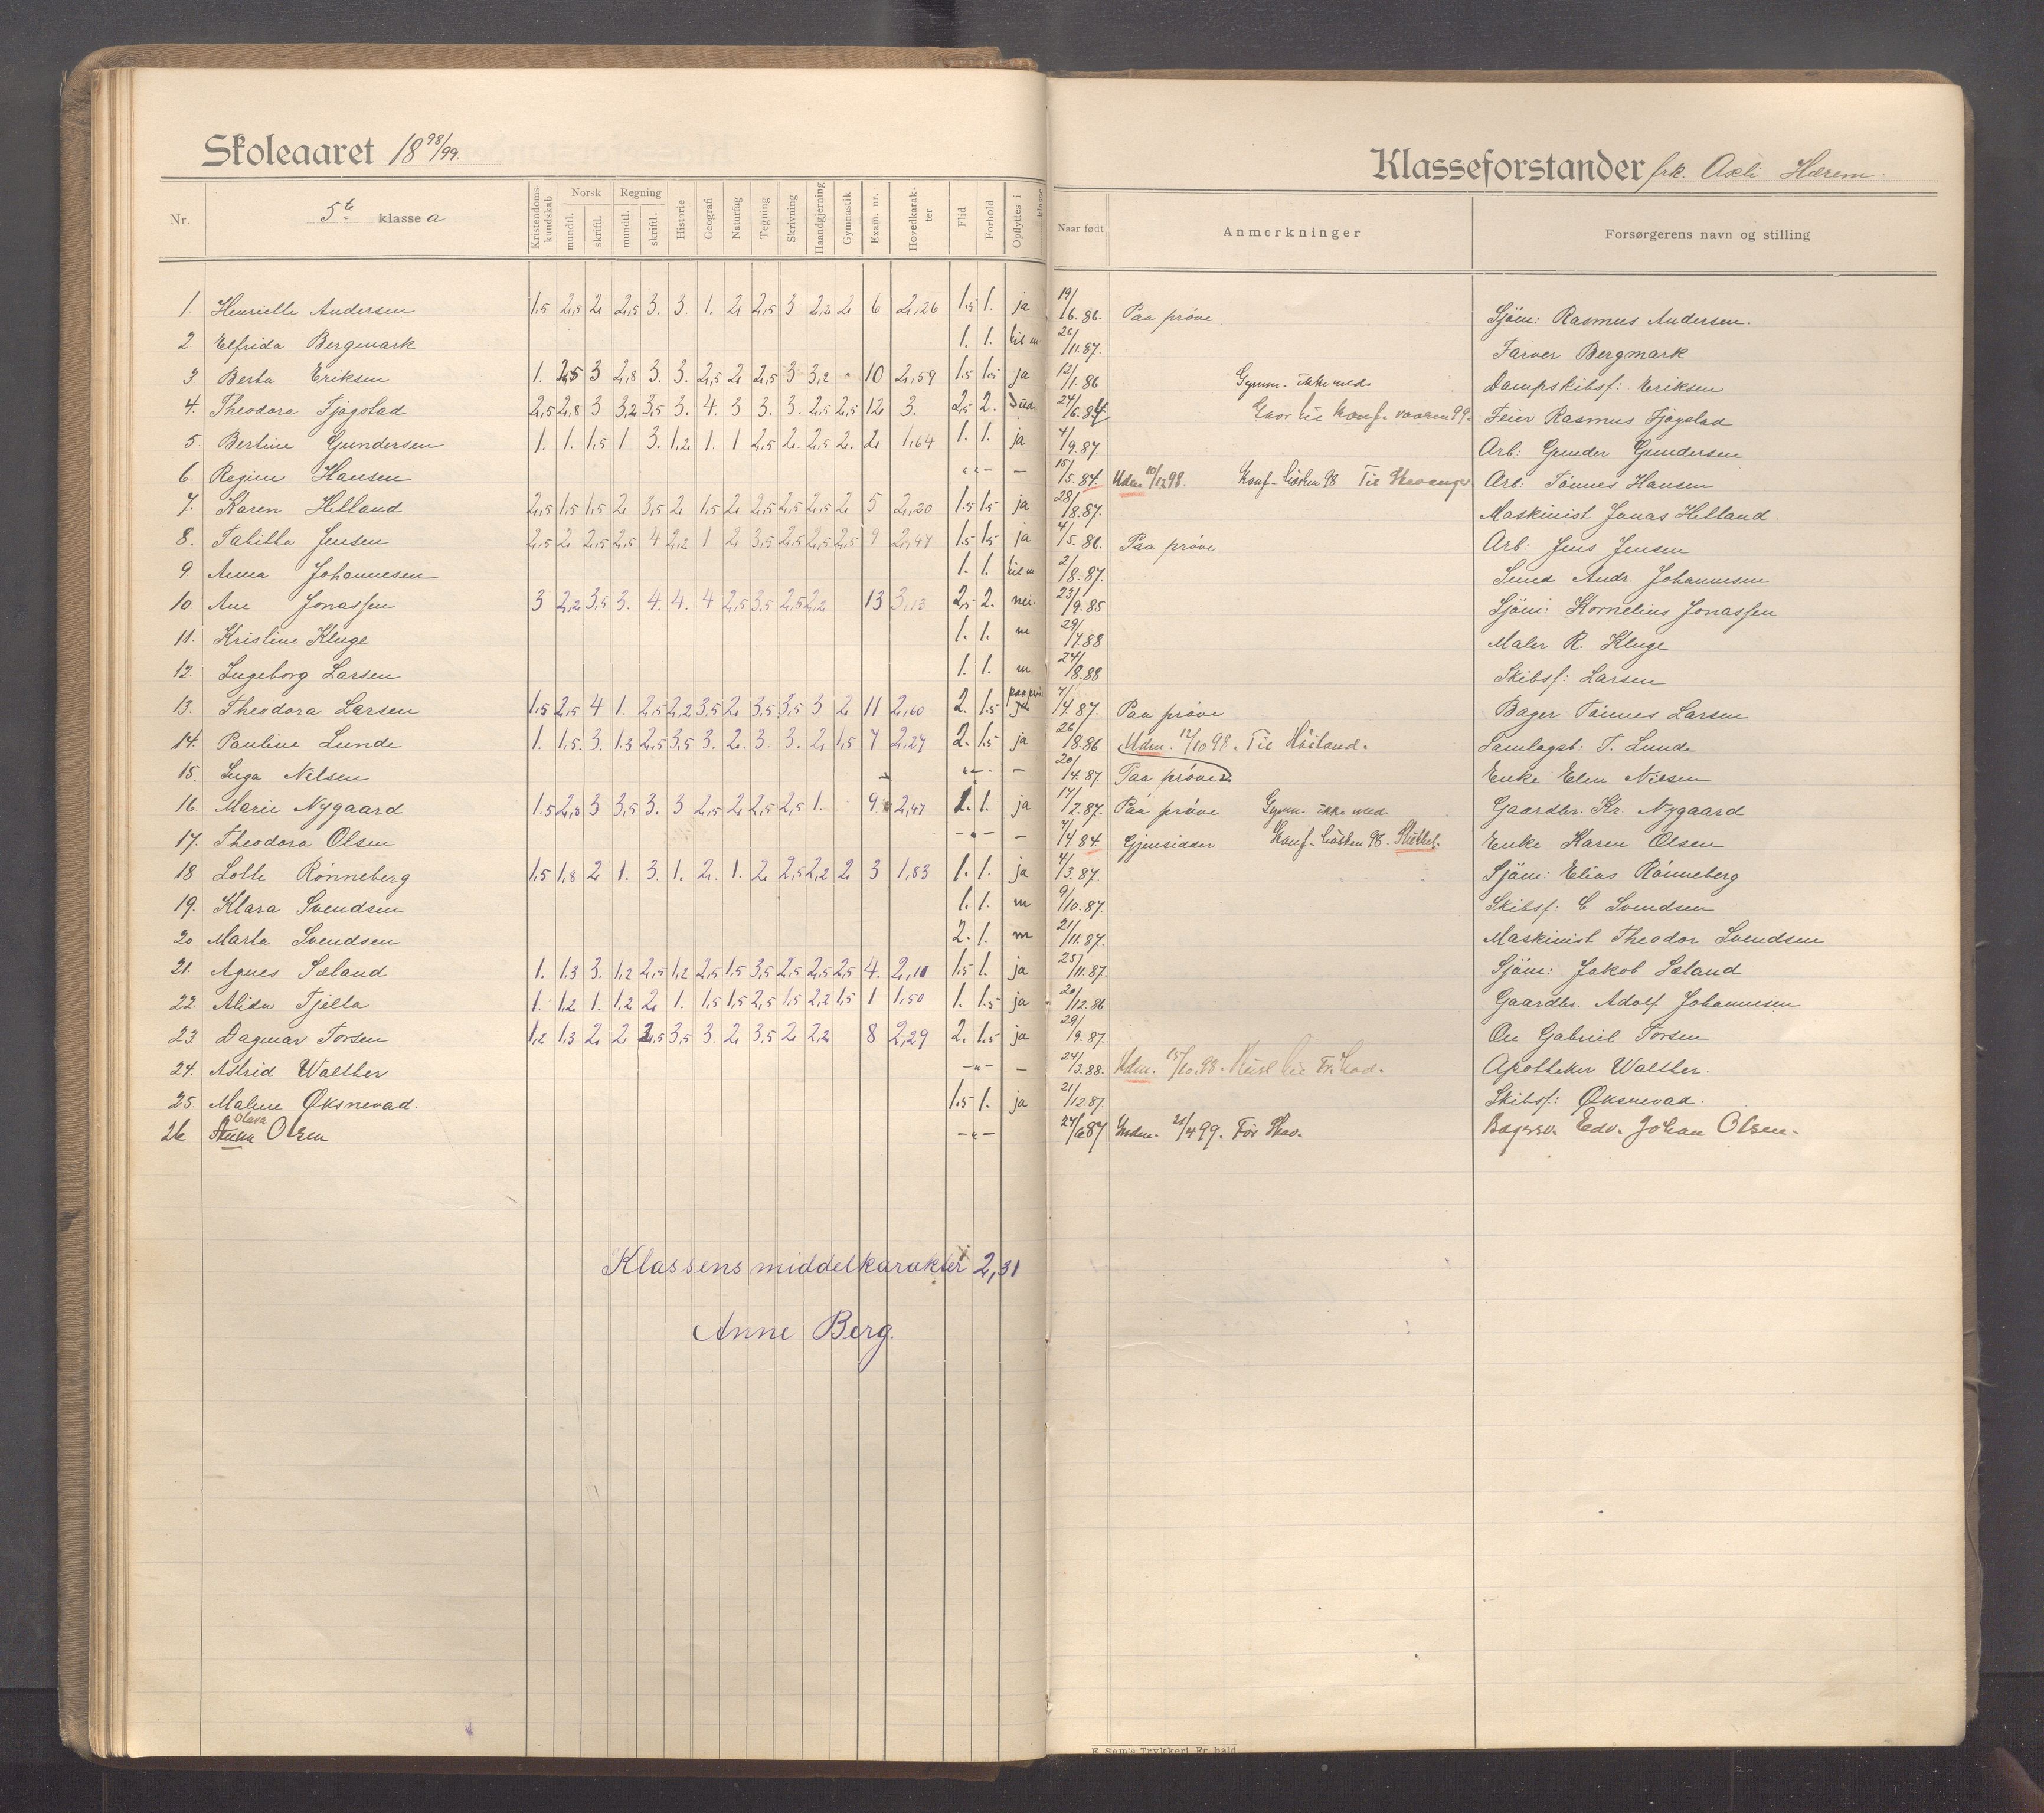 Skoleaaret 18 98/99.
Klasseforstander frk. Axeli Hærem.
Nr. 5te klasse a Kristendomskundskab Norsk mundtl. skriftl. Regning mundtl. skriftl. Historie Geografi Naturfag Tegning Skrivning Haandgjerning Gymnastik Exam. nr. Hovedkarakter Flid Forhold Opflyttes i klasse Naar født Anmerkninger Forsørgerens navn og stilling
1. Henriette Andersen 1,5 2,5 2 2,5 3. 3. 1. 2 2,5 3 2,2 2 6 2,26 1.5 1. ja 19/6.86. Paa prøve Sjøm: Rasmus Andersen.
2. Elfrida Bergmark 1. 1. til m 26/11.87. Farver Bergmark
3. Berta Eriksen 1. 2,5 3 2,8 3. 3. 2,5 2 2,5 3 3,2 10 2,59 1.5 1.5 ja 12/1.86 Gymn. ikke med. Dampskibsf: Eriksen
4. Theodora Fjogstad 2,5 2,8 3 3,2 3,5 3. 4. 3 3. 3. 2,5 2,5 12 3. 2,5 2. 24/6.84 til konf. vaaren 99. Feier Rasmus Fjogstad
5. Bertine Gundersen 1. 1. 1,5 1 3. 1,2 1. 1 2,5 2. 2,5 2. 2 1,64 1. 1. ja 4/9.87. Arb: Gunder Gundersen
6. Regine Hansen " - — 15/5.84 Udm. 10/12 98. Konf. høsten 98 Til Stavanger Arb: Tønnes Hansen
7. Karen Helland 2,5 1,5 1,5 2 3,5 2 1,5 2 2,5 2,5 2,5 2 5 2,20 1.5 1.5 ja 28/8.87. Maskinist Jonas Helland.
8. Tabitta Jensen 2,5 2 2,5 2,5 4 2,2 1 2 3,5 2,5 2,5 2,5 9 2,47 1.5 1.5 ja 4/5.86. Paa prøve Arb: Jens Jensen
9. Anna Johannesen 1. 1. til m 2/8.87. Smed Andr. Johannesen
10. Ane Jonassen 3 2,2 3,5 3. 4. 4. 4 2,5 3,5 2,5 2,2 13 3,13 2,5 2. nei. 23/9.85 Sjøm: Kornelius Jonassen
11. Kristine Kluge 1. 1. m 29/7.88 Maler R. Kluge
12. Ingeborg Larsen 1. 1. m 24/8.88 Skibsf: Larsen
13. Theodora Larsen 1,5 2,5 4 1. 2,5 2,2 3,5 2 3,5 3,5 3 2 11 2,60 2. 1.5 paa prøve ja 4/4.87. Paa prøve Bager Tønnes Larsen
14. Pauline Lunde 1. 1,5. 3. 1.3 2,5 3,5 3. 2. 3. 3. 2, 1,5 7 2,27 2. 1.5 ja 26/8.86 Udm. 12/10 98. Til Høiland. Samlagsb: T. Lunde
15. Inga Nilsen - " - — 20/4.87. Paa prøve Enke Elen Nilsen
16. Marie Nygaard 1.5 2,8 3 3,5 3. 3 2,5 2 2,5 2,5 1. 9 2,47 1. 1. ja 17/2.87. Paa prøve Gymn. ikke med. Gaardbr. Kr. Nygaard
17. Theodora Olsen - " - — 7/4.84 Gjensidder Konf. høsten 98. Sluttet. Enke Karen Olsen
18 Lotte Rønneberg 1,5 1,8 2 1. 3. 1. 2. 1. 2 2,5 2,2 2 3 1,83 1. 1. ja 4/3.87. Sjøm: Elias Rønneberg
19. Klara Svendsen 1. 1. m 9/10.87. Skibsf: C Svendsen
20 Marta Svendsen 2. 1. m 21/11.87. Maskinist Theodor Svendsen
21. Agnes Sæland 1. 1.3 3. 1,2 2,5 1,2 2,5 1.5 3,5 2,5 2,5 2,5 4. 2,10 1.5 1. ja 25/11.87. Sjøm: Jakob Sæland
22. Alida Tjelta 1. 1,2 1. 1,2 2. 1. 1,5 1,5 2,5 1,5 2,2 1,5 1 1,50 1. 1.5 ja 20/12.86 Gaardbr. Adolf Johannesen
23 Dagmar Torsen 1,2 1,3 2 2 2,5 3,5 3. 2 3,5 2 2,2 8 2,29 2. 1.5 ja 29/9.87. Ole Gabriel Torsen
24. Astrid Walther - " - — 24/3.88. Udm. 15/10.98. Apotheker Walther.
25. Malene Øksnevad. 1.5 1. ja 21/12.87. Skibsf: Øksnevad.
Olava
26 Anna Olsen - " - 24/6 87 Indm. 21/4 99. Før Stav. Edv. Johan Olsen.
Klassens middelkarakter 2,31
Anne Berg.